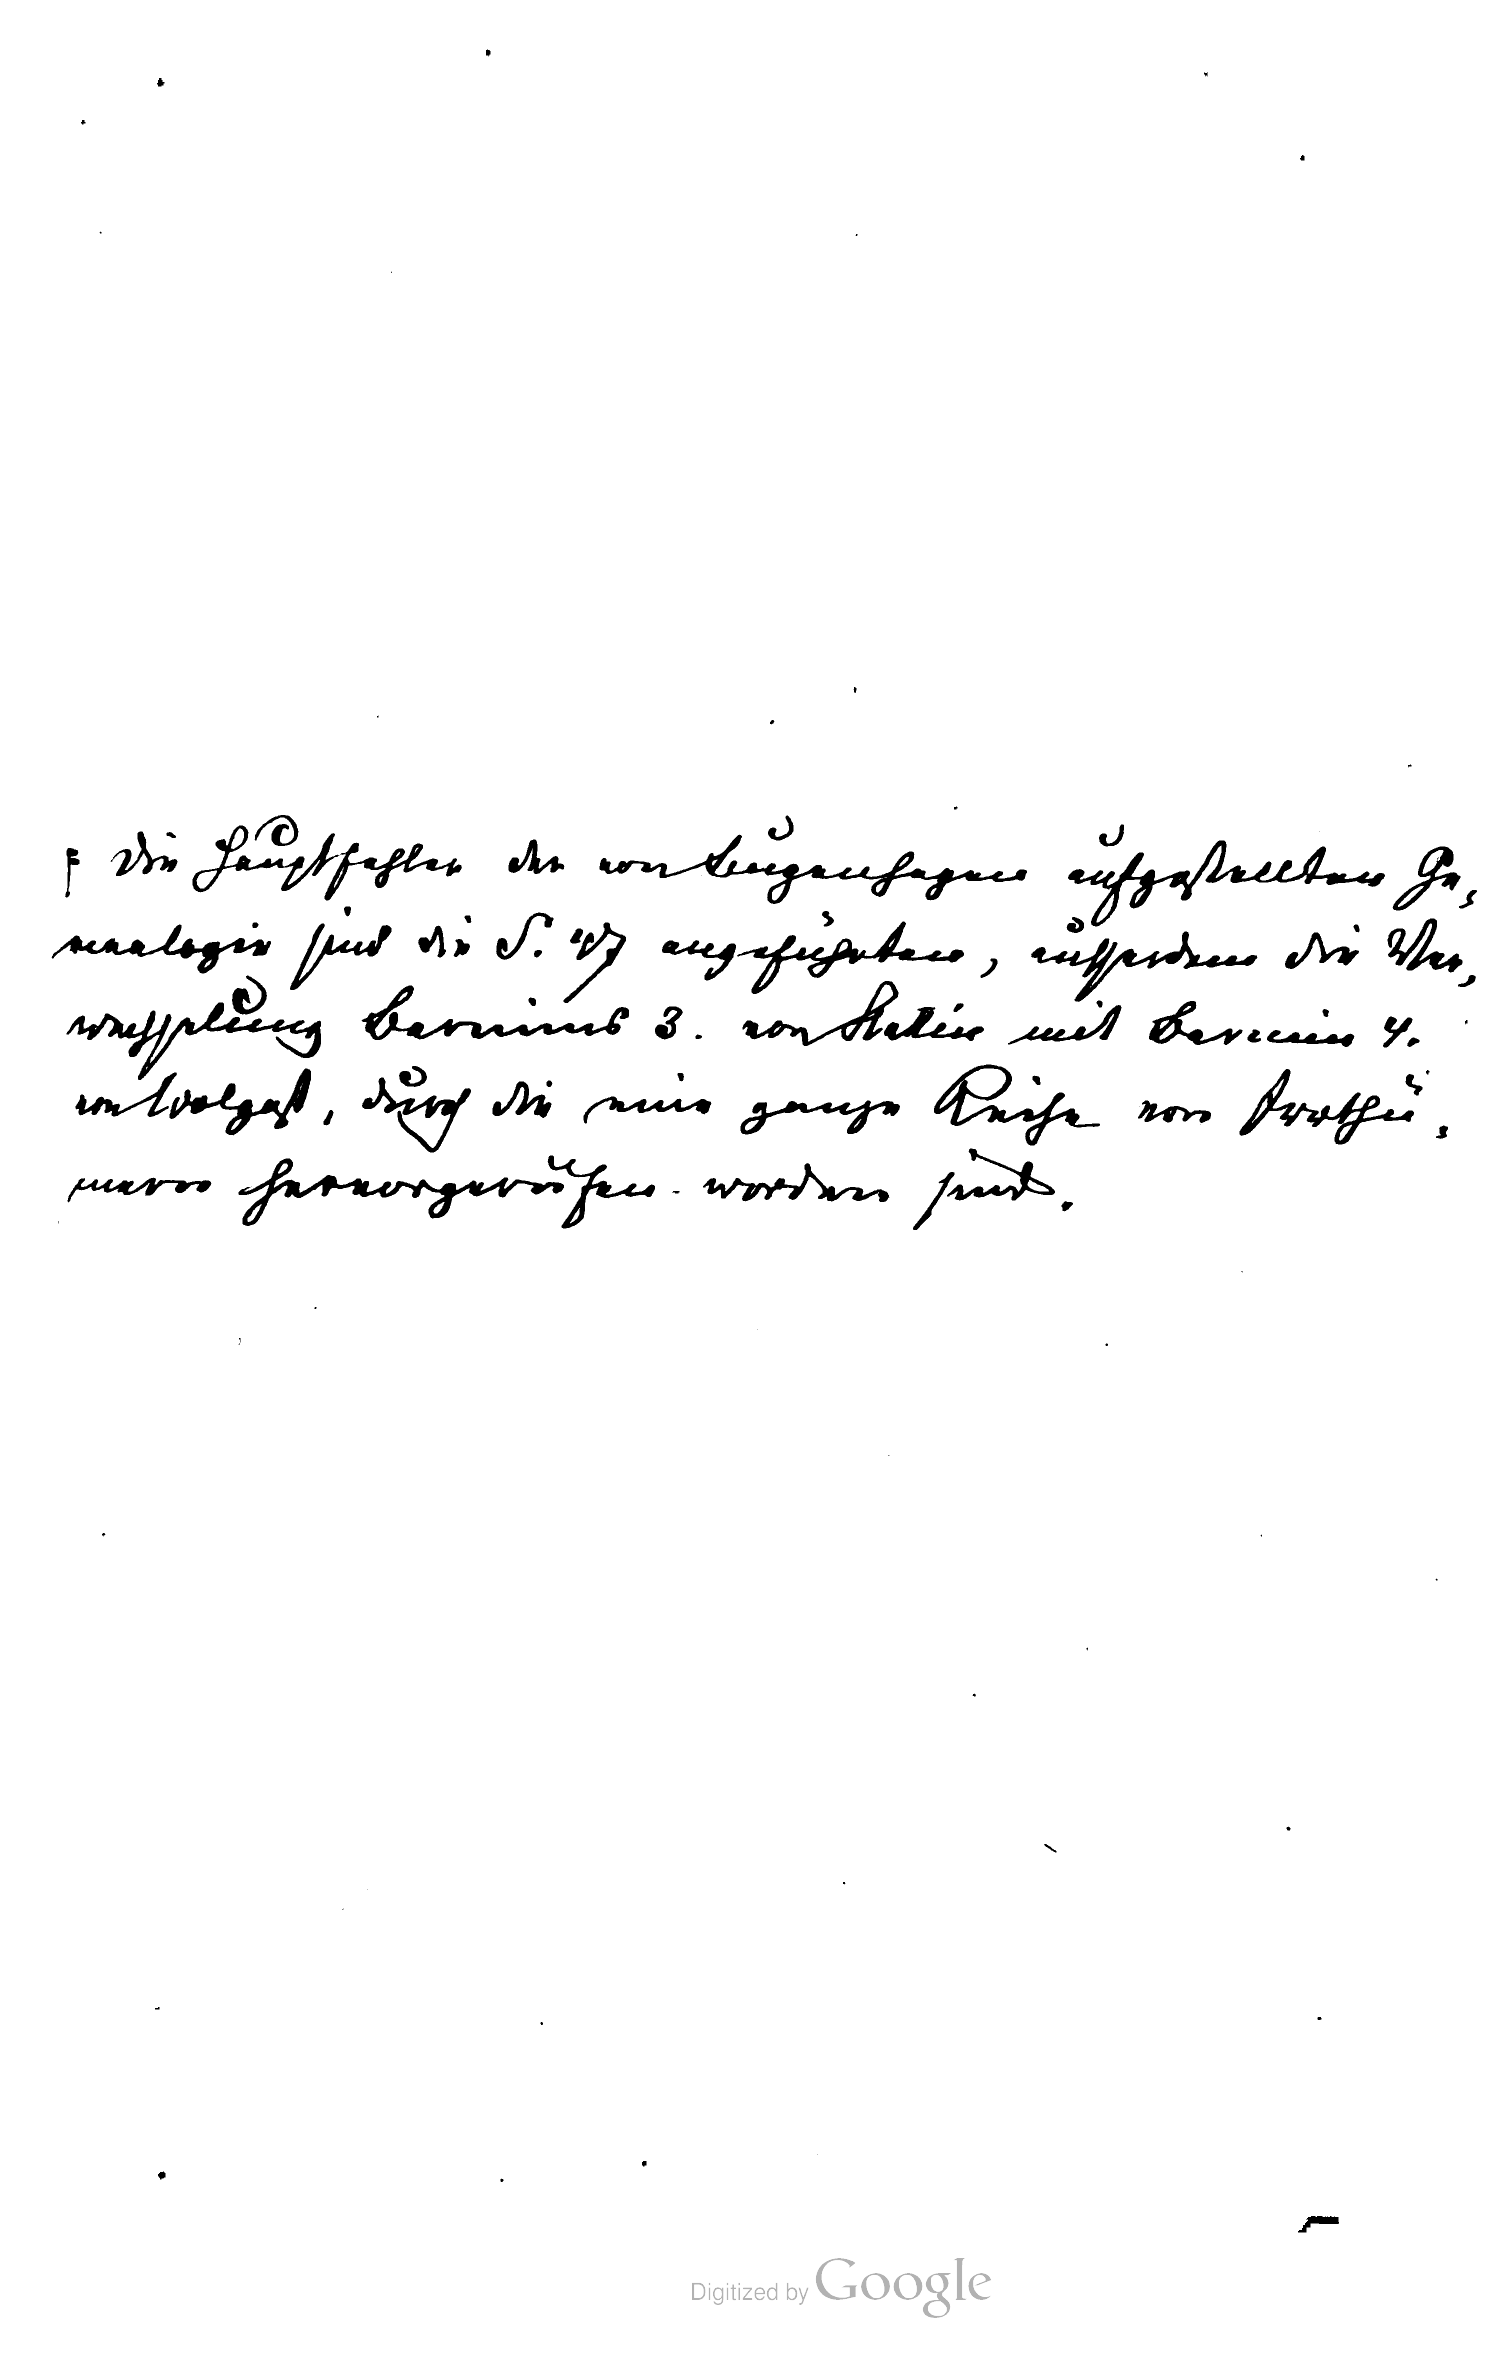 F Die Hauptfehler der von Bugenhagen aufgestellten Ge,
nealogie sind die S. 47 angeführten, ausserdem die Ver,
wechselung Barnims 3. von Stettin mit Barnim 4.
von Wolgast, durch die eine ganze Reihe von Irrthü,
mern hervorgerufen worden sind.
Digitized by Google